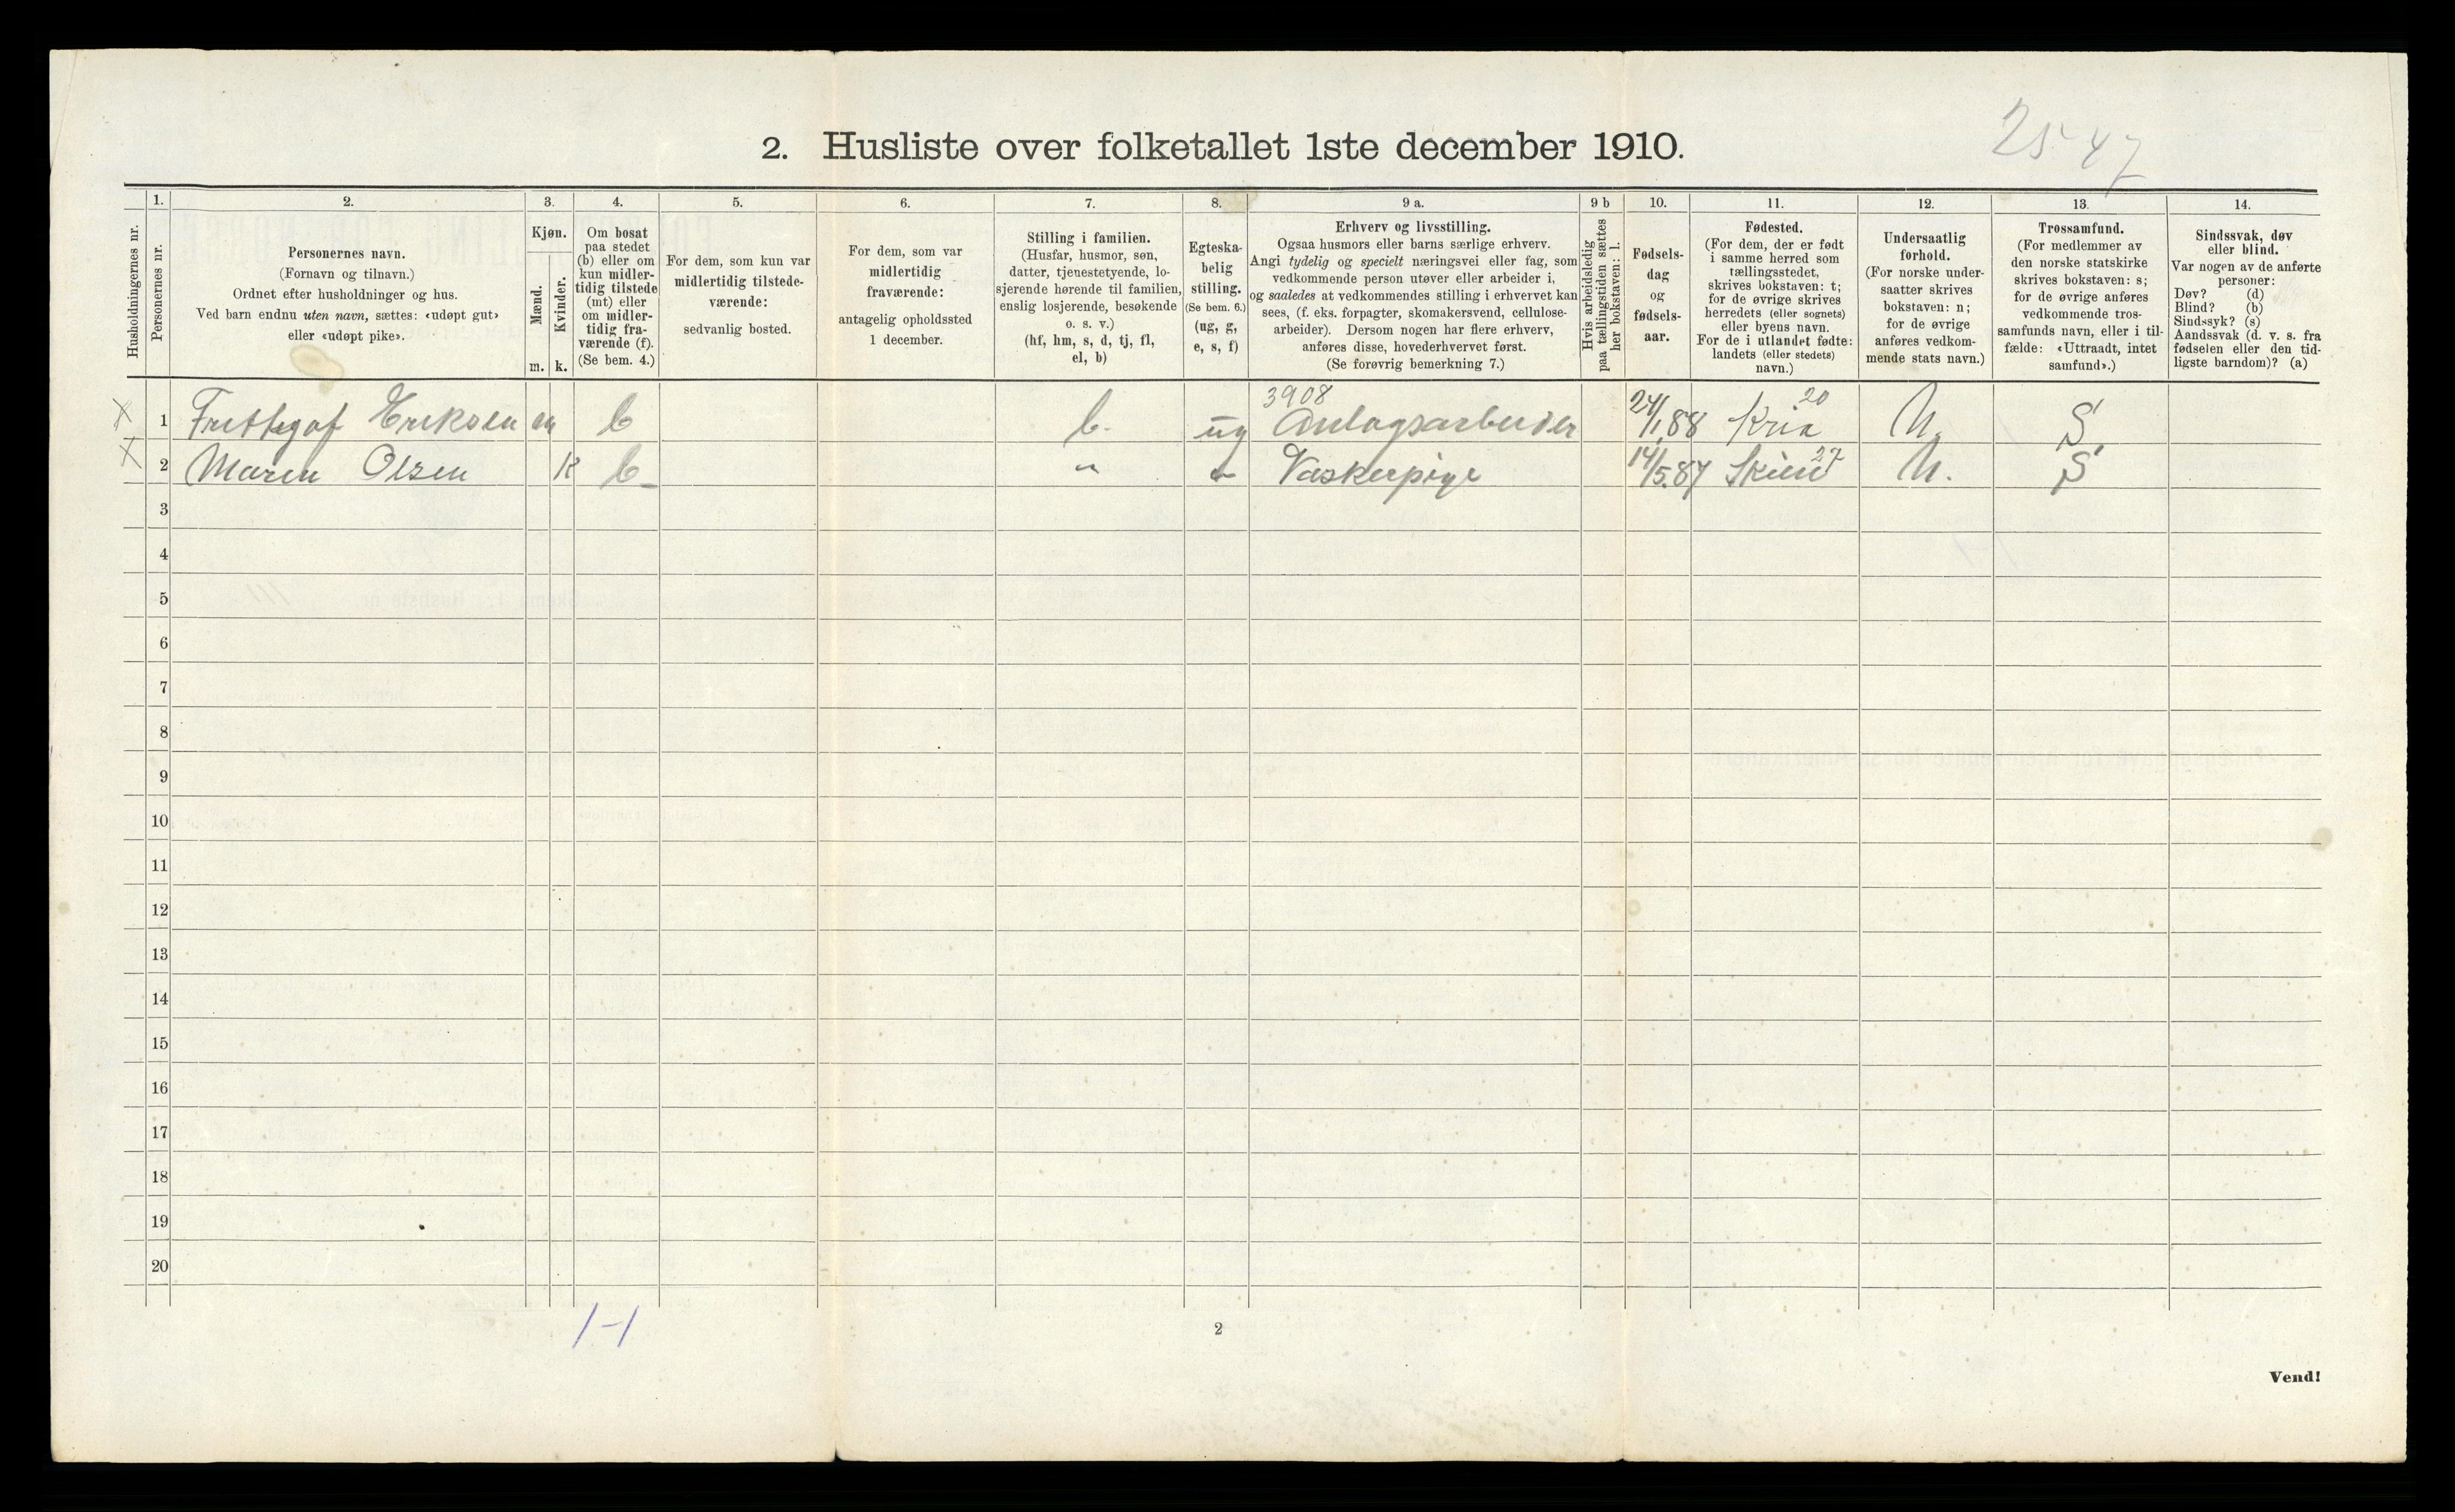 25-47
2. Husliste over folketallet 1ste december 1910.
Husholdningernes nr.
1.
Personernes nr.
2.
Personernes navn.
(Fornavn og tilnavn.)
Ordnet efter husholdninger og hus.
Ved barn endnu uten navn, sættes: «udøpt gut»
eller «udøpt pike».
3.
Kjøn.
Mænd.
m.
Kvinder.
k.
4.
Om bosat
paa stedet
(b) eller om
kun midler-
tidig tilstede
(mt) eller
om midler-
tidig fra-
værende (f).
(Se bem. 4.)
5.
For dem, som kun var
midlertidig tilstede-
værende:
sedvanlig bosted.
6.
For dem, som var
midlertidig
fraværende:
antagelig opholdssted
1 december.
7.
Stilling i familien.
(Husfar, husmor, søn,
datter, tjenestetyende, lo-
sjerende hørende til familien,
enslig losjerende, besøkende
o. s. v.)
(hf, hm, s, d, tj, fl,
el, b)
8.
Egteska-
belig
stilling.
(Se bem. 6.)
(ug, g,
e, s, f)
9 a.
Erhverv og livsstilling.
Ogsaa husmors eller barns særlige erhverv.
Angi tydelig og specielt næringsvei eller fag, som
vedkommende person utøver eller arbeider i,
og saaledes at vedkommendes stilling i erhvervet kan
sees, (f. eks. forpagter, skomakersvend, cellulose-
arbeider). Dersom nogen har flere erhverv,
anføres disse, hovederhvervet først.
(Se forøvrig bemerkning 7.)
9 b
Hvis arbeidsledig
paa tællingstiden sættes
her bokstaven: l.
10.
Fødsels-
dag
og
fødsels-
aar.
11.
Fødested.
(For dem, der er født
i samme herred som
tællingsstedet,
skrives bokstaven: t;
for de øvrige skrives
herredets (eller sognets)
eller byens navn.
For de i utlandet fødte:
landets (eller stedets)
navn.)
12.
Undersaatlig
forhold.
(For norske under-
saatter skrives
bokstaven: n;
for de øvrige
anføres vedkom-
mende stats navn.)
13.
Trossamfund.
(For medlemmer av
den norske statskirke
skrives bokstaven: s;
for de øvrige anføres
vedkommende tros-
samfunds navn, eller i til-
fælde: «Uttraadt, intet
samfund».)
14.
Sindssvak, døv
eller blind.
Var nogen av de anførte
personer:
Døv? (d)
Blind? (b)
Sindssyk? (s)
Aandssvak (d. v. s. fra
fødselen eller den tid-
ligste barndom)? (a)
3908 20
X 1 Frithgof Eriksen m b b. ug Anlagsarbeider 24/1.88 Kria N. S.
27
X 2 Maren Olsen K b - " " Vaskerpige 14/5.87 Skien N. S
3
4
5
6
7
8
9
10
11
12
13
14
15
16
17
18
19
20
1-1
2
Vend!